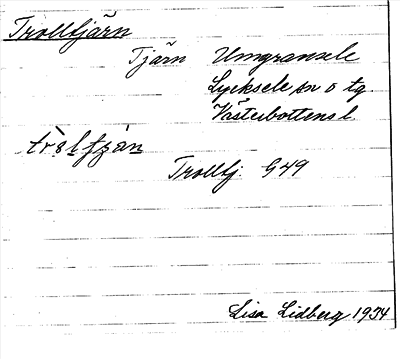 Trolltjärn
Tjärn Umgransele
Lycksele sn o tg.
Västerbottens l.
Trolltj. G49
Lisa Lidberg 1934